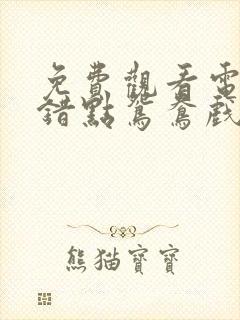 免費觀看電
錯點鴛鴦戲
熊猫寶寶